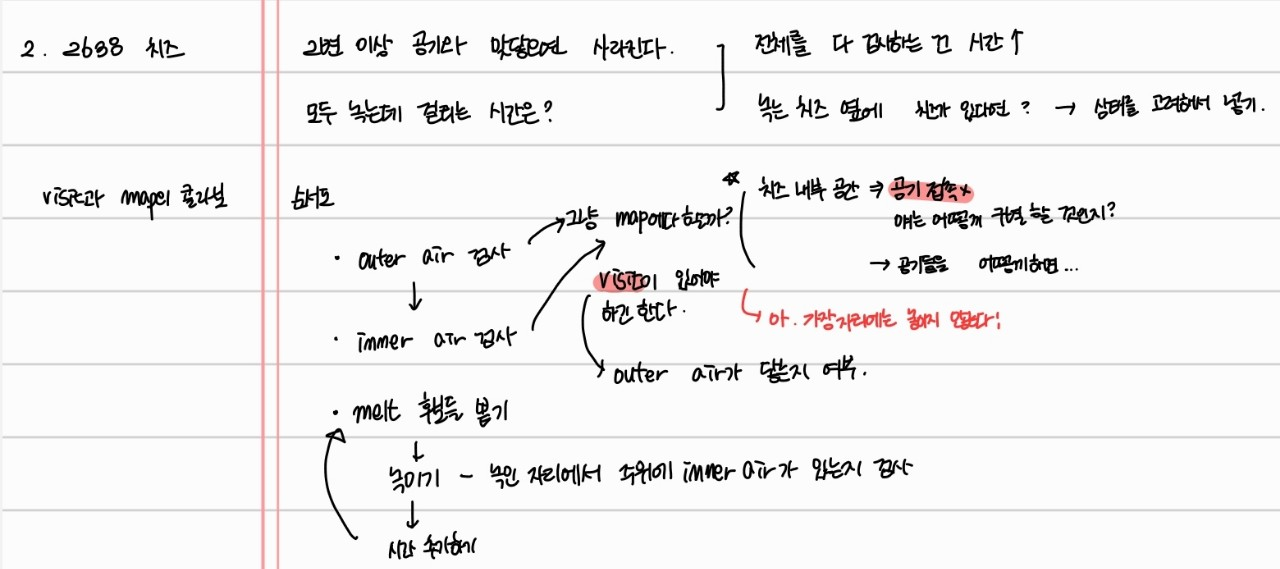 2. 2638 치즈
2변 이상 공기와 맞닿으면 사라진다.
모두 녹는데 걸리는 시간은?
전체를 다 검사하는 건 시간↑
녹는 치즈 옆에 친가 있다면? → 상태를 고려해서 넣기.
visit과 map의 콜라보
순서도
· outer air 검사
↓
· inner air 검사
그냥 map에다 할까?
visit이 있어야
하긴 한다.
outer air가 닿는지 여부.
☆ 치즈 내부 공간 ⇒ 공기 접촉 x
얘는 어떻게 구현 할 것인지?
→ 공기들을 어떻게하면 ...
↳ 아. 가장자리에는 놓이지 않는다!
· melt 후보들 뽑기
↓
녹이기 - 녹인 자리에서 주위에 inner air가 있는지 검사
↓
시간 추가하기